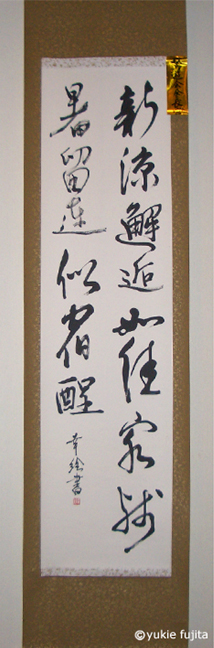 新涼邂逅如佳客残
暑留連似宿酲
幸絵書
©yukie fujita